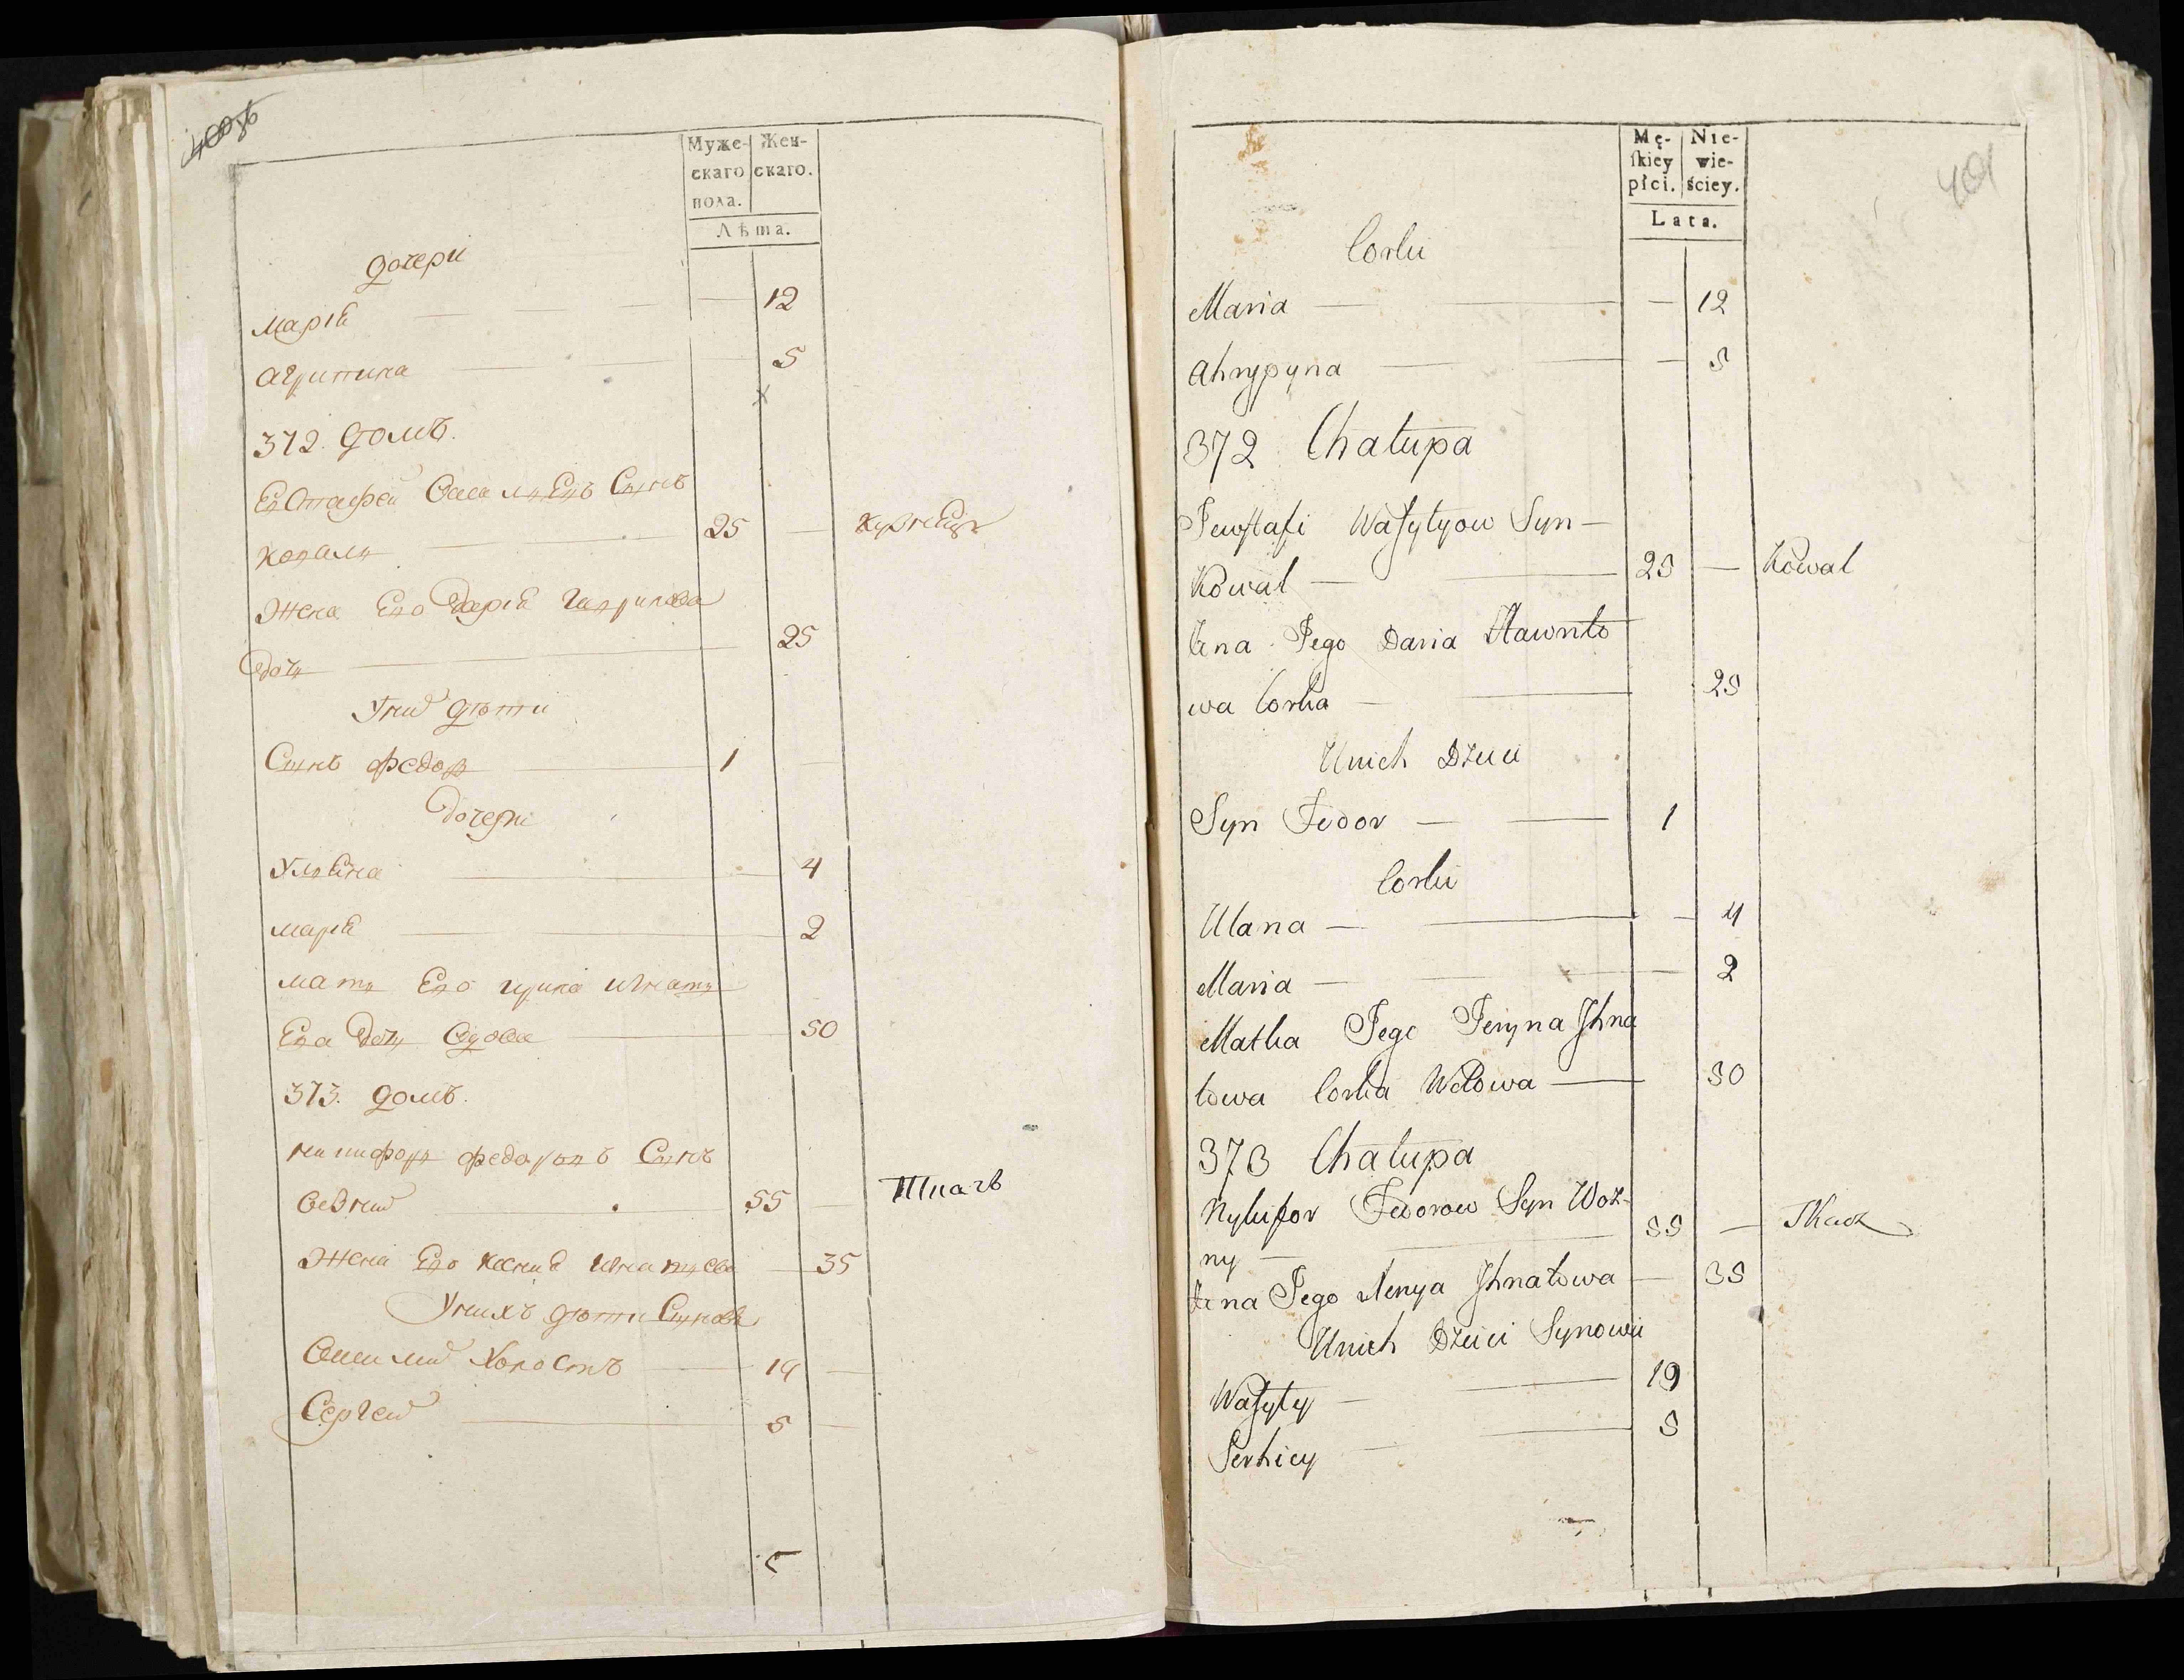 400об
Муже-
скаго
пола.
Жен-
скаго.
Лѣта.
дочери
Марія — — — — 12
Агрипина — — 5
372. домъ.
Евстафей Василевъ Сынъ
Коваль — 25 — Кузнецъ
Жена Его Дарія Гаврилова
Дочь — 25
У них дѣти
Сынъ Федор — 1
Дочери
Ульяна — 4
Марія — 2
Мать Его Ирина Игнать
Ева Дочь Вдова — 50
373. домъ.
Никифоръ Федоровъ Сынъ
Возный — 55 — Ткачъ
Жена Его Ксения Игнатьева — 35
У нихъ дѣти Сыновья
Василий Холостъ — 19 —
Сергей — 5 —
401
Mę-
ſkiey
płci.
Nie-
wie-
ściey.
Lata.
Corki
Maria — — — 12
Ahrypyna — — — 5
372 Chałupa
Jewſtafi Waſylyow Syn —
Kowal — — 25 — Kowal
Żena Jego Daria Hawryło
wa Corka — — 25
Unich Dzieci
Syn Fedor — — 1
Corki
Ulana — — — 4
Maria — — — 2
Matka Jego Jeryna Jhna
towa Corka Wdowa — 50
373 Chałupa
Nykifor Fedorow Syn Woz-
ny — — 55 — Tkacz
Żena Jego Xenya Jhnatowa — 35
Unich Dzieci Synowie
Waſyly — — 19
Serhiey — — 5